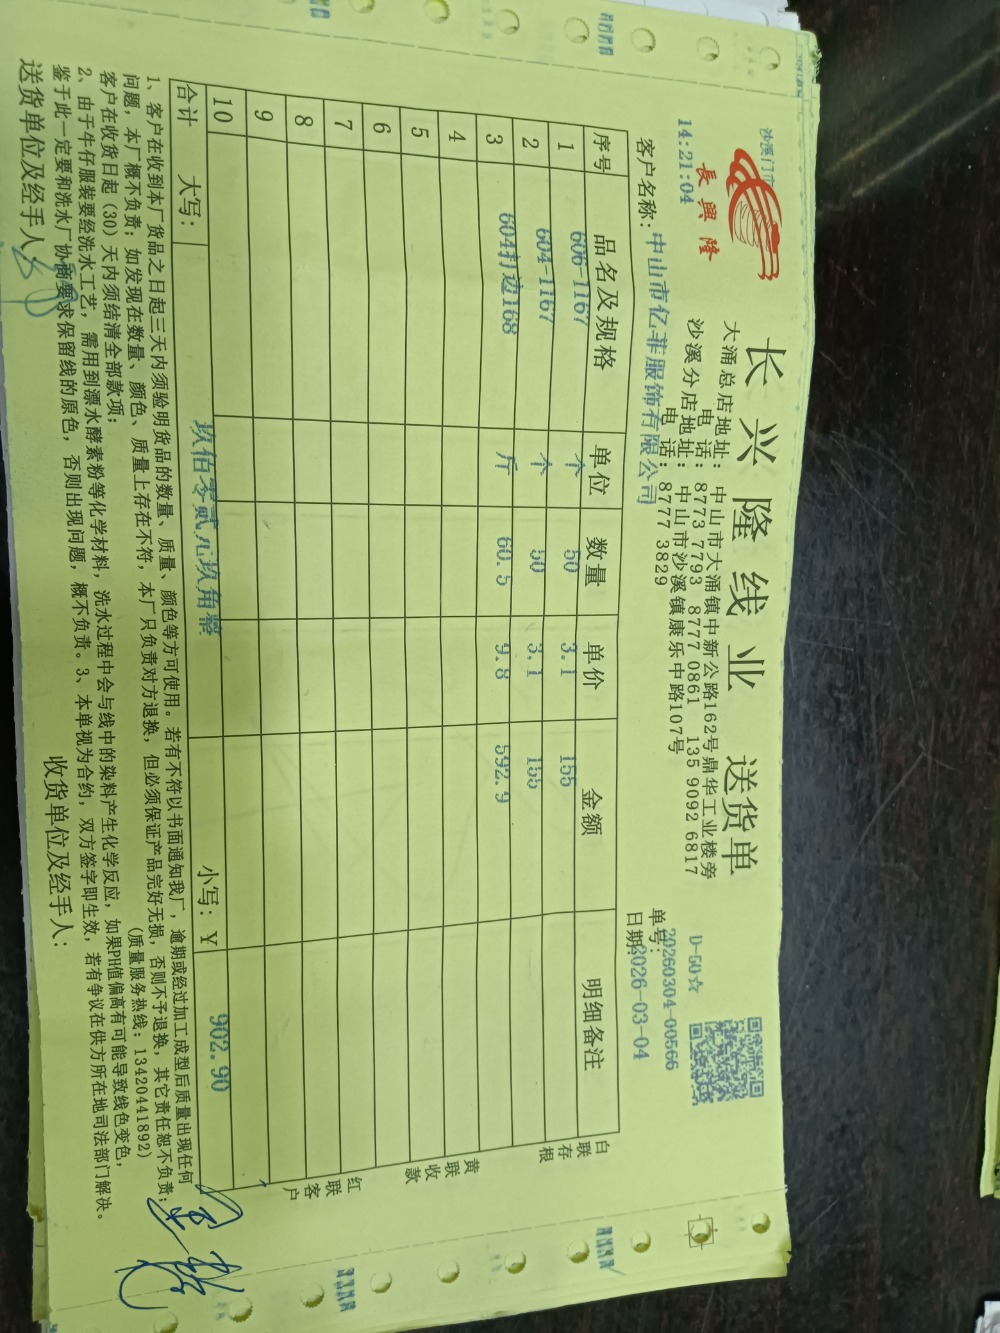 沙溪门市
長興隆
14:21:04
长兴隆线业 送货单
大涌总店地址: 中山市大涌镇中新公路162号鼎华工业楼旁
电 话: 8773 7793 8777 0861 135 9092 6817
沙溪分店地址: 中山市沙溪镇康乐中路107号
电 话: 8777 3829
D-50☆
单号: 20260304-00566
日期: 2026-03-04
客户名称: 中山市亿菲服饰有限公司
序号 品名及规格 单位 数量 单价 金额 明细备注
1 606-1167 个 50 3.1 155
2 604-1167 个 50 3.1 155
3 604打边168 斤 60.5 9.8 592.9
4
5
6
7
8
9
10
合计 大写: 玖佰零贰元玖角整 小写: Y 902.90
白联存根
黄联收款
红联客户
1、客户在收到本厂货品之日起三天内须验明货品的数量、质量、颜色等方可使用。若有不符以书面通知我厂,逾期或经过加工成型后质量出现任何
问题,本厂概不负责;如发现在数量、颜色、质量上存在不符,本厂只负责对方退换,但必须保证产品完好无损,否则不予退换,其它责任恕不负责;
客户在收货日起(30)天内须结清全部款项; (质量服务热线: 13420441892)
2、由于牛仔服装要经洗水工艺,需用到漂水酵素粉等化学材料,洗水过程中会与线中的染料产生化学反应,如果PH值偏高有可能导致线色变色,
鉴于此一定要和洗水厂协商要求保留线的原色,否则出现问题,概不负责。3、本单视为合约,双方签字即生效,若有争议在供方所在地司法部门解决。
送货单位及经手人: 收货单位及经手人: